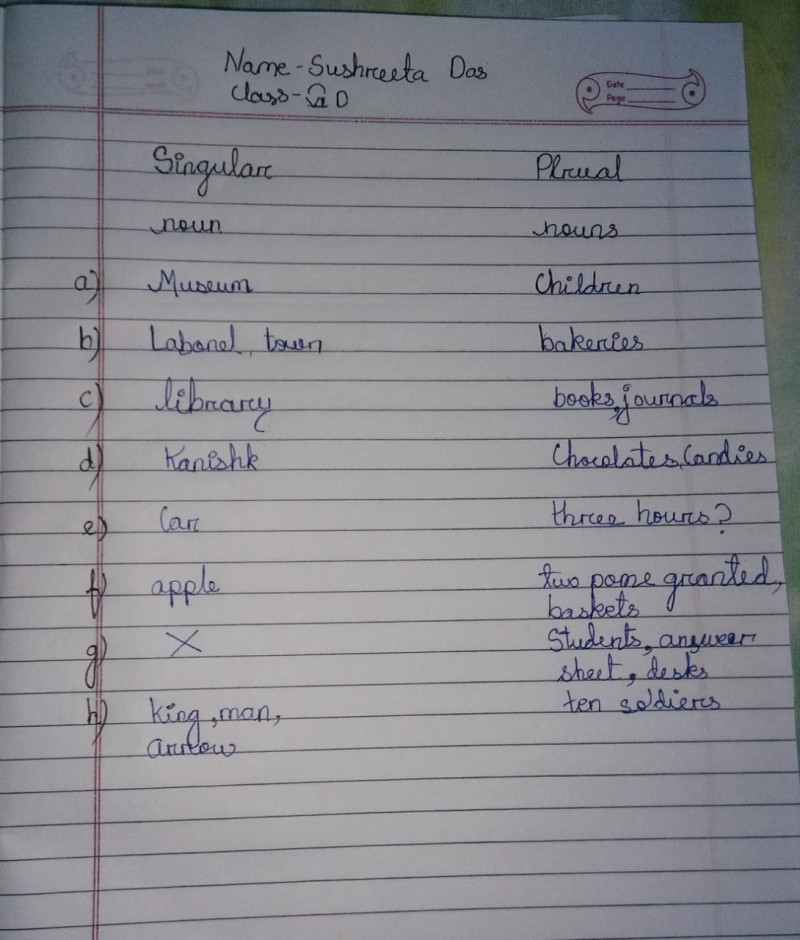 Name - Sushreeta Das
Class - D
Date
Page
Singular Plrual
noun nouns
a) Museum Children
b) Labonel, town bakeries
c) library books, journals
d) Kanishk Chocolates, Candies
e) Car three hours?
f) apple two pome granted,
baskets
g) X Students, answer
sheet, desks
h) king, man, ten soldiers
arrow